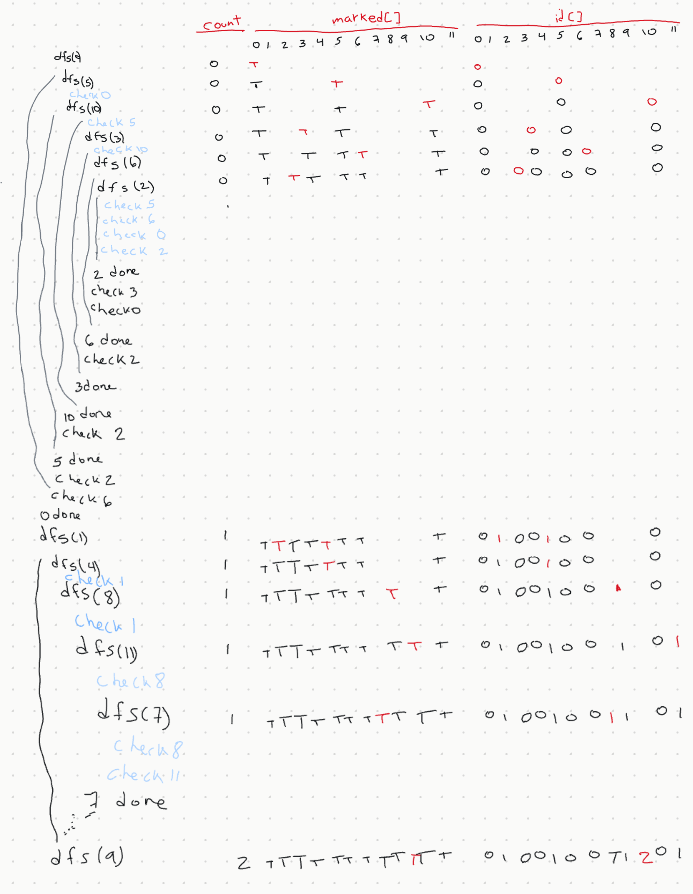 count marked[] id[]
0 1 2 3 4 5 6 7 8 9 10 11 0 1 2 3 4 5 6 7 8 9 10 11
0 T 0
dfs(5) 0 T T 0 0
check 0
dfs(10) 0 T T T 0 0 0
check 5
dfs(3) 0 T T T T 0 0 0 0
check 10
dfs(6) 0 T T T T T 0 0 0 0 0
dfs(2) 0 T T T T T T 0 0 0 0 0 0
check 5
check 6
check 0
check 2
2 done
check 3
check 0
6 done
check 2
3 done
10 done
check 2
5 done
check 2
check 6
0 done
dfs(1) 1 T T T T T T T T 0 1 0 0 1 0 0 0
dfs(4) 1 T T T T T T T T 0 1 0 0 1 0 0 0
check 1
dfs(8) 1 T T T T T T T T T 0 1 0 0 1 0 0 0
check 1
dfs(11) 1 T T T T T T T T T T 0 1 0 0 1 0 0 1 0 1
check 8
dfs(7) 1 T T T T T T T T T T T 0 1 0 0 1 0 0 1 1 0 1
check 8
check 11
7 done
dfs(9) 2 T T T T T T T T T T T T 0 1 0 0 1 0 0 1 2 0 1